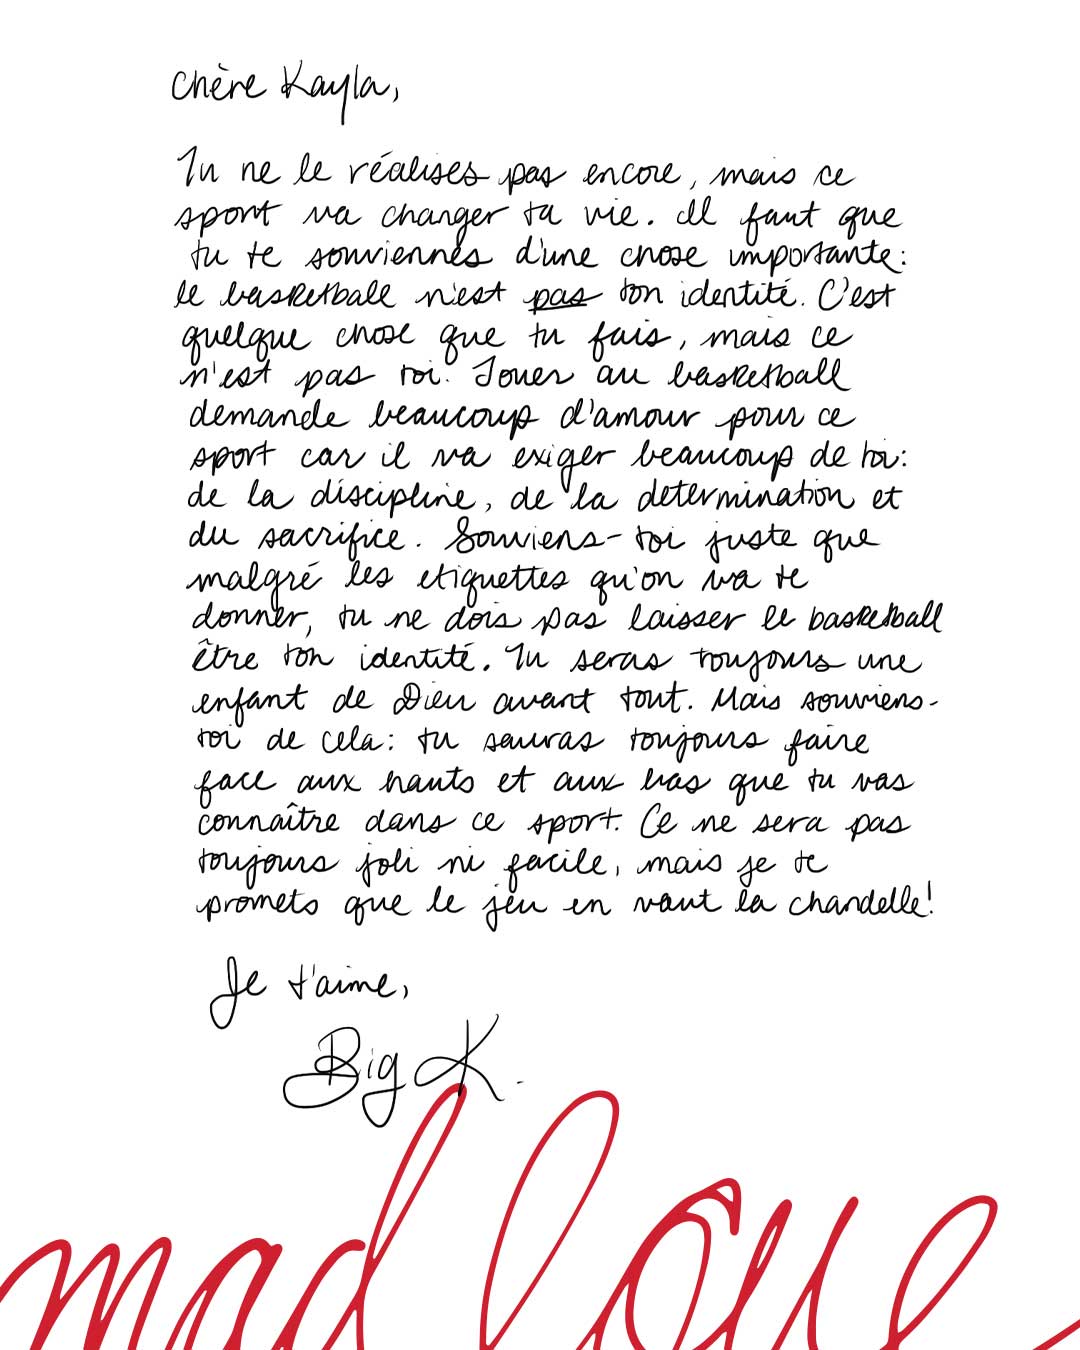 Chère Kayla,
Tu ne le réalises pas encore, mais ce
sport va changer ta vie. Il faut que
tu te souviennes d'une chose importante:
le basketball n'est pas ton identité. C'est
quelque chose que tu fais, mais ce
n'est pas toi. Jouer au basketball
demande beaucoup d'amour pour ce
sport car il va exiger beaucoup de toi:
de la discipline, de la determination et
du sacrifice. Souviens-toi juste que
malgré les etiquettes qu'on va te
donner, tu ne dois pas laisser le basketball
être ton identité. Tu seras toujours une
enfant de Dieu avant tout. Mais souviens-
toi de cela: tu sauras toujours faire
face aux hauts et aux bas que tu vas
connaître dans ce sport. Ce ne sera pas
toujours joli ni facile, mais je te
promets que le jeu en vaut la chandelle!
Je t'aime,
Big K.
mad love